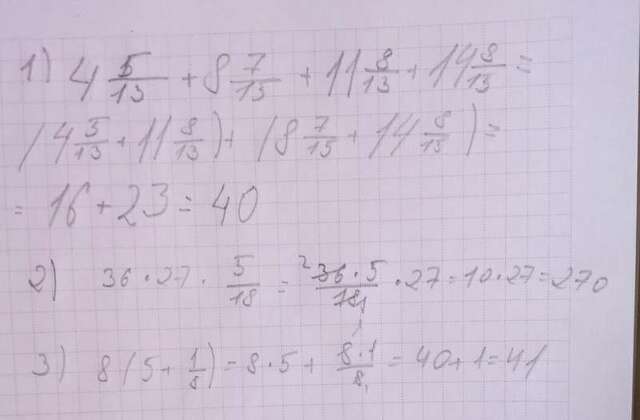 1) 4 5/13 + 8 7/15 + 11 8/13 + 14 8/15 =
(4 5/13 + 11 8/13) + (8 7/15 + 14 8/15) =
= 16 + 23 = 40
2) 36 · 27 · 5/18 = ²36 · 5/18₁ · 27 = 10 · 27 = 270
3) 8 (5 + 1/8) = 8 · 5 + 8 · 1/8₁ = 40 + 1 = 41